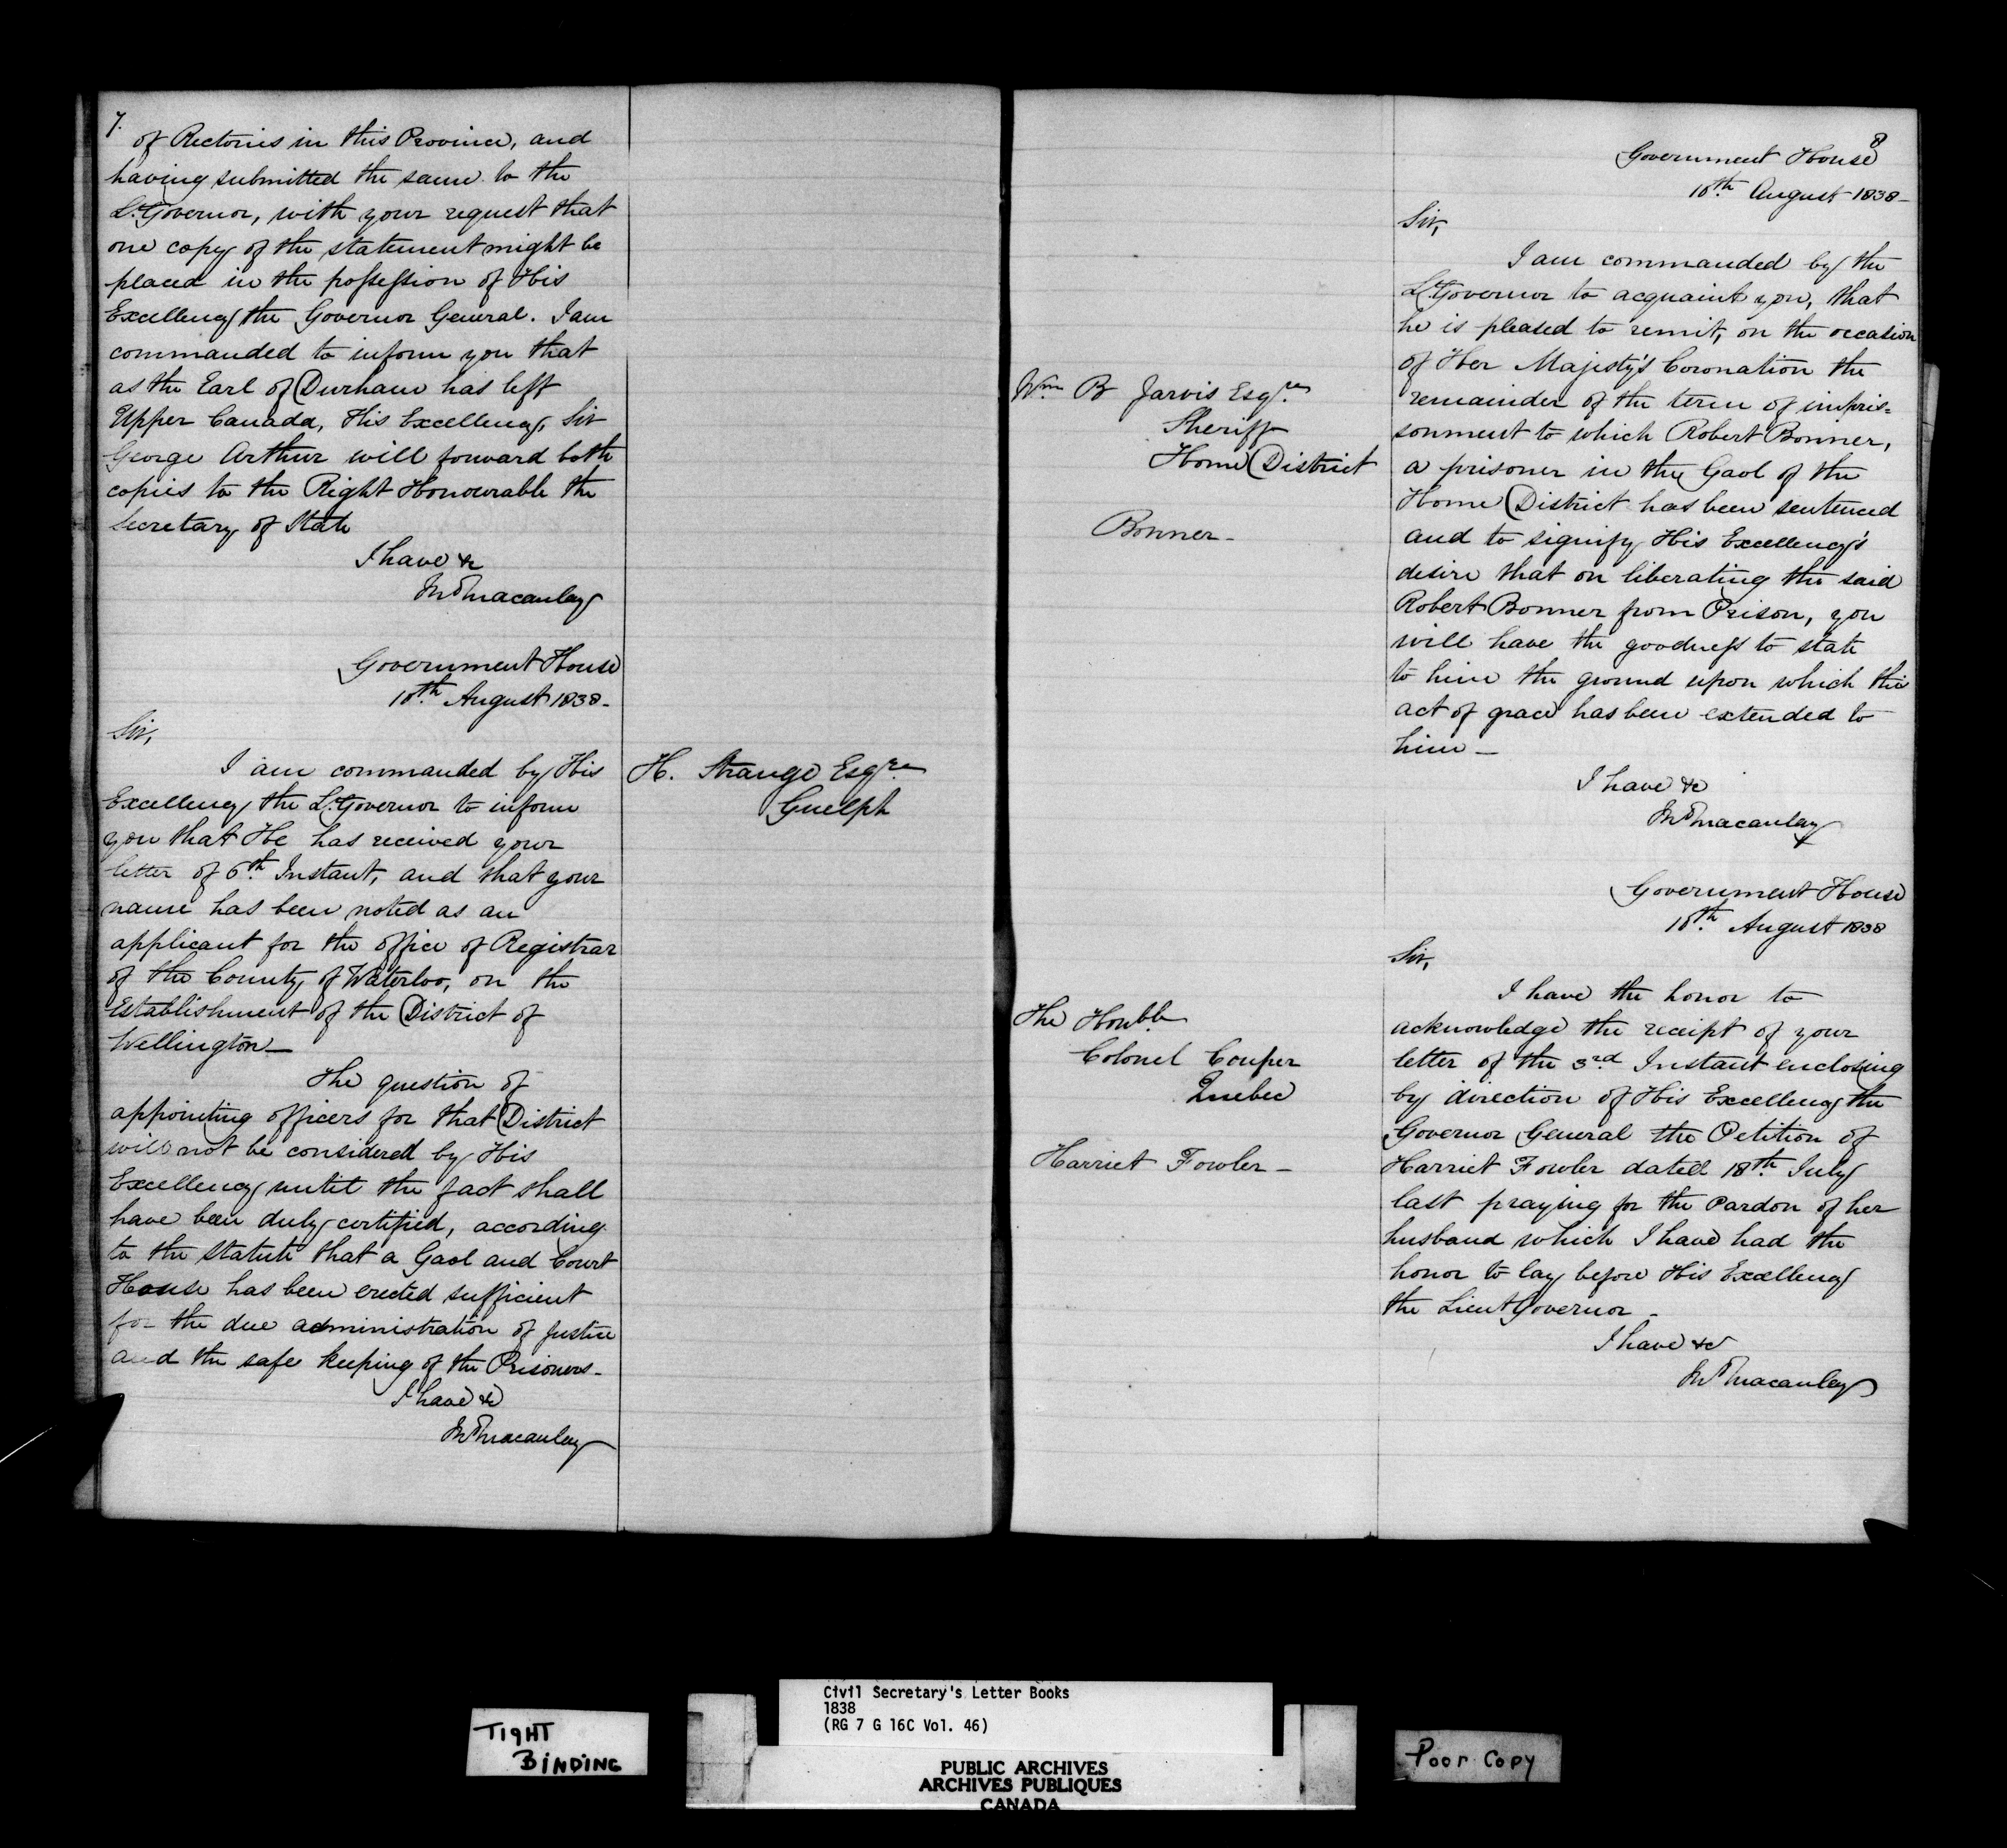 7.
of Rectories in this Province, and
having submitted the same to the
Lt. Governor, with your request that
one copy of the statement might be
placed in the possession of His
Excellency the Governor General. I am
commanded to inform you that
as the Earl of Durham has left
Upper Canada, His Excellency, Sir
George Arthur will forward both
copies to the Right Honourable the
Secretary of State
I have &c
Jno Macaulay
Government House
10th. August 1838-
Sir,
I am commanded by His
Excellency the Lt. Governor to inform
you that He has received your
letter of 6th. Instant, and that your
name has been noted as an
applicant for the office of Registrar
of the County of Waterloo, on the
Establishment of the District of
Wellington—
The question of
appointing officers for that District
will not be considered by His
Excellency until the fact shall
have been duly certified, according
to the statute that a Gaol and Court
House has been erected sufficient
for the due administration of Justice
and the safe keeping of the Prisoners-
I have &c
Jno Macaulay
H. Strange Esqre
Guelph
8
Government House
10th. August 1838-
Sir,
I am commanded by the
Lt. Governor to acquaint you, that
he is pleased to remit, on the occasion
of Her Majesty's Coronation the
remainder of the term of impris=
sonment to which Robert Bonner,
a prisoner in the Gaol of the
Home District has been sentenced
and to signify His Excellency's
desire that on liberating the said
Robert Bonner from Prison, you
will have the goodness to state
to him the ground upon which this
act of grace has been extended to
him—
I have &c
Jno Macaulay
Wm B Jarvis Esqre.
Sheriff
Home District
Bonner-
Government House
10th. August 1838
Sir,
I have the honor to
acknowledge the receipt of your
letter of the 3rd. Instant enclosing
by direction of His Excellency the
Governor General the Petition of
Harriet Fowler dated 18th. July
last praying for the Pardon of her
husband which I have had the
honor to lay before His Excellency
the Lieut Governor-
I have &c
Jno Macaulay
The Honble.
Colonel Couper
Quebec
Harriet Fowler-
Civil Secretary's Letter Books
1838
(RG 7 G 16C Vol. 46)
TIGHT
BINDING
PUBLIC ARCHIVES
ARCHIVES PUBLIQUES
CANADA
Poor Copy